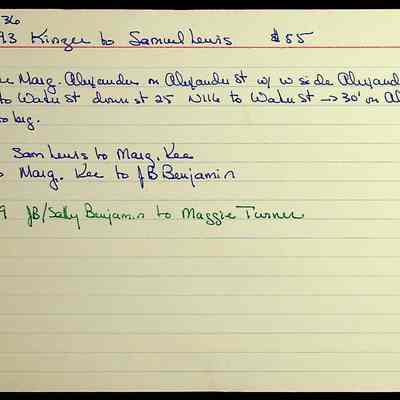 36
93 Kinzer to Samuel Lewis $55
Marg. Alexander on Alexander St w/ w side Alexand
to Water St down st 25 N116 to Water St → 30' on Al
to beg.
Sam Lewis to Marg. Kee
Marg. Kee to JB Benjamin
9 JB/Sally Benjamin to Maggie Turner